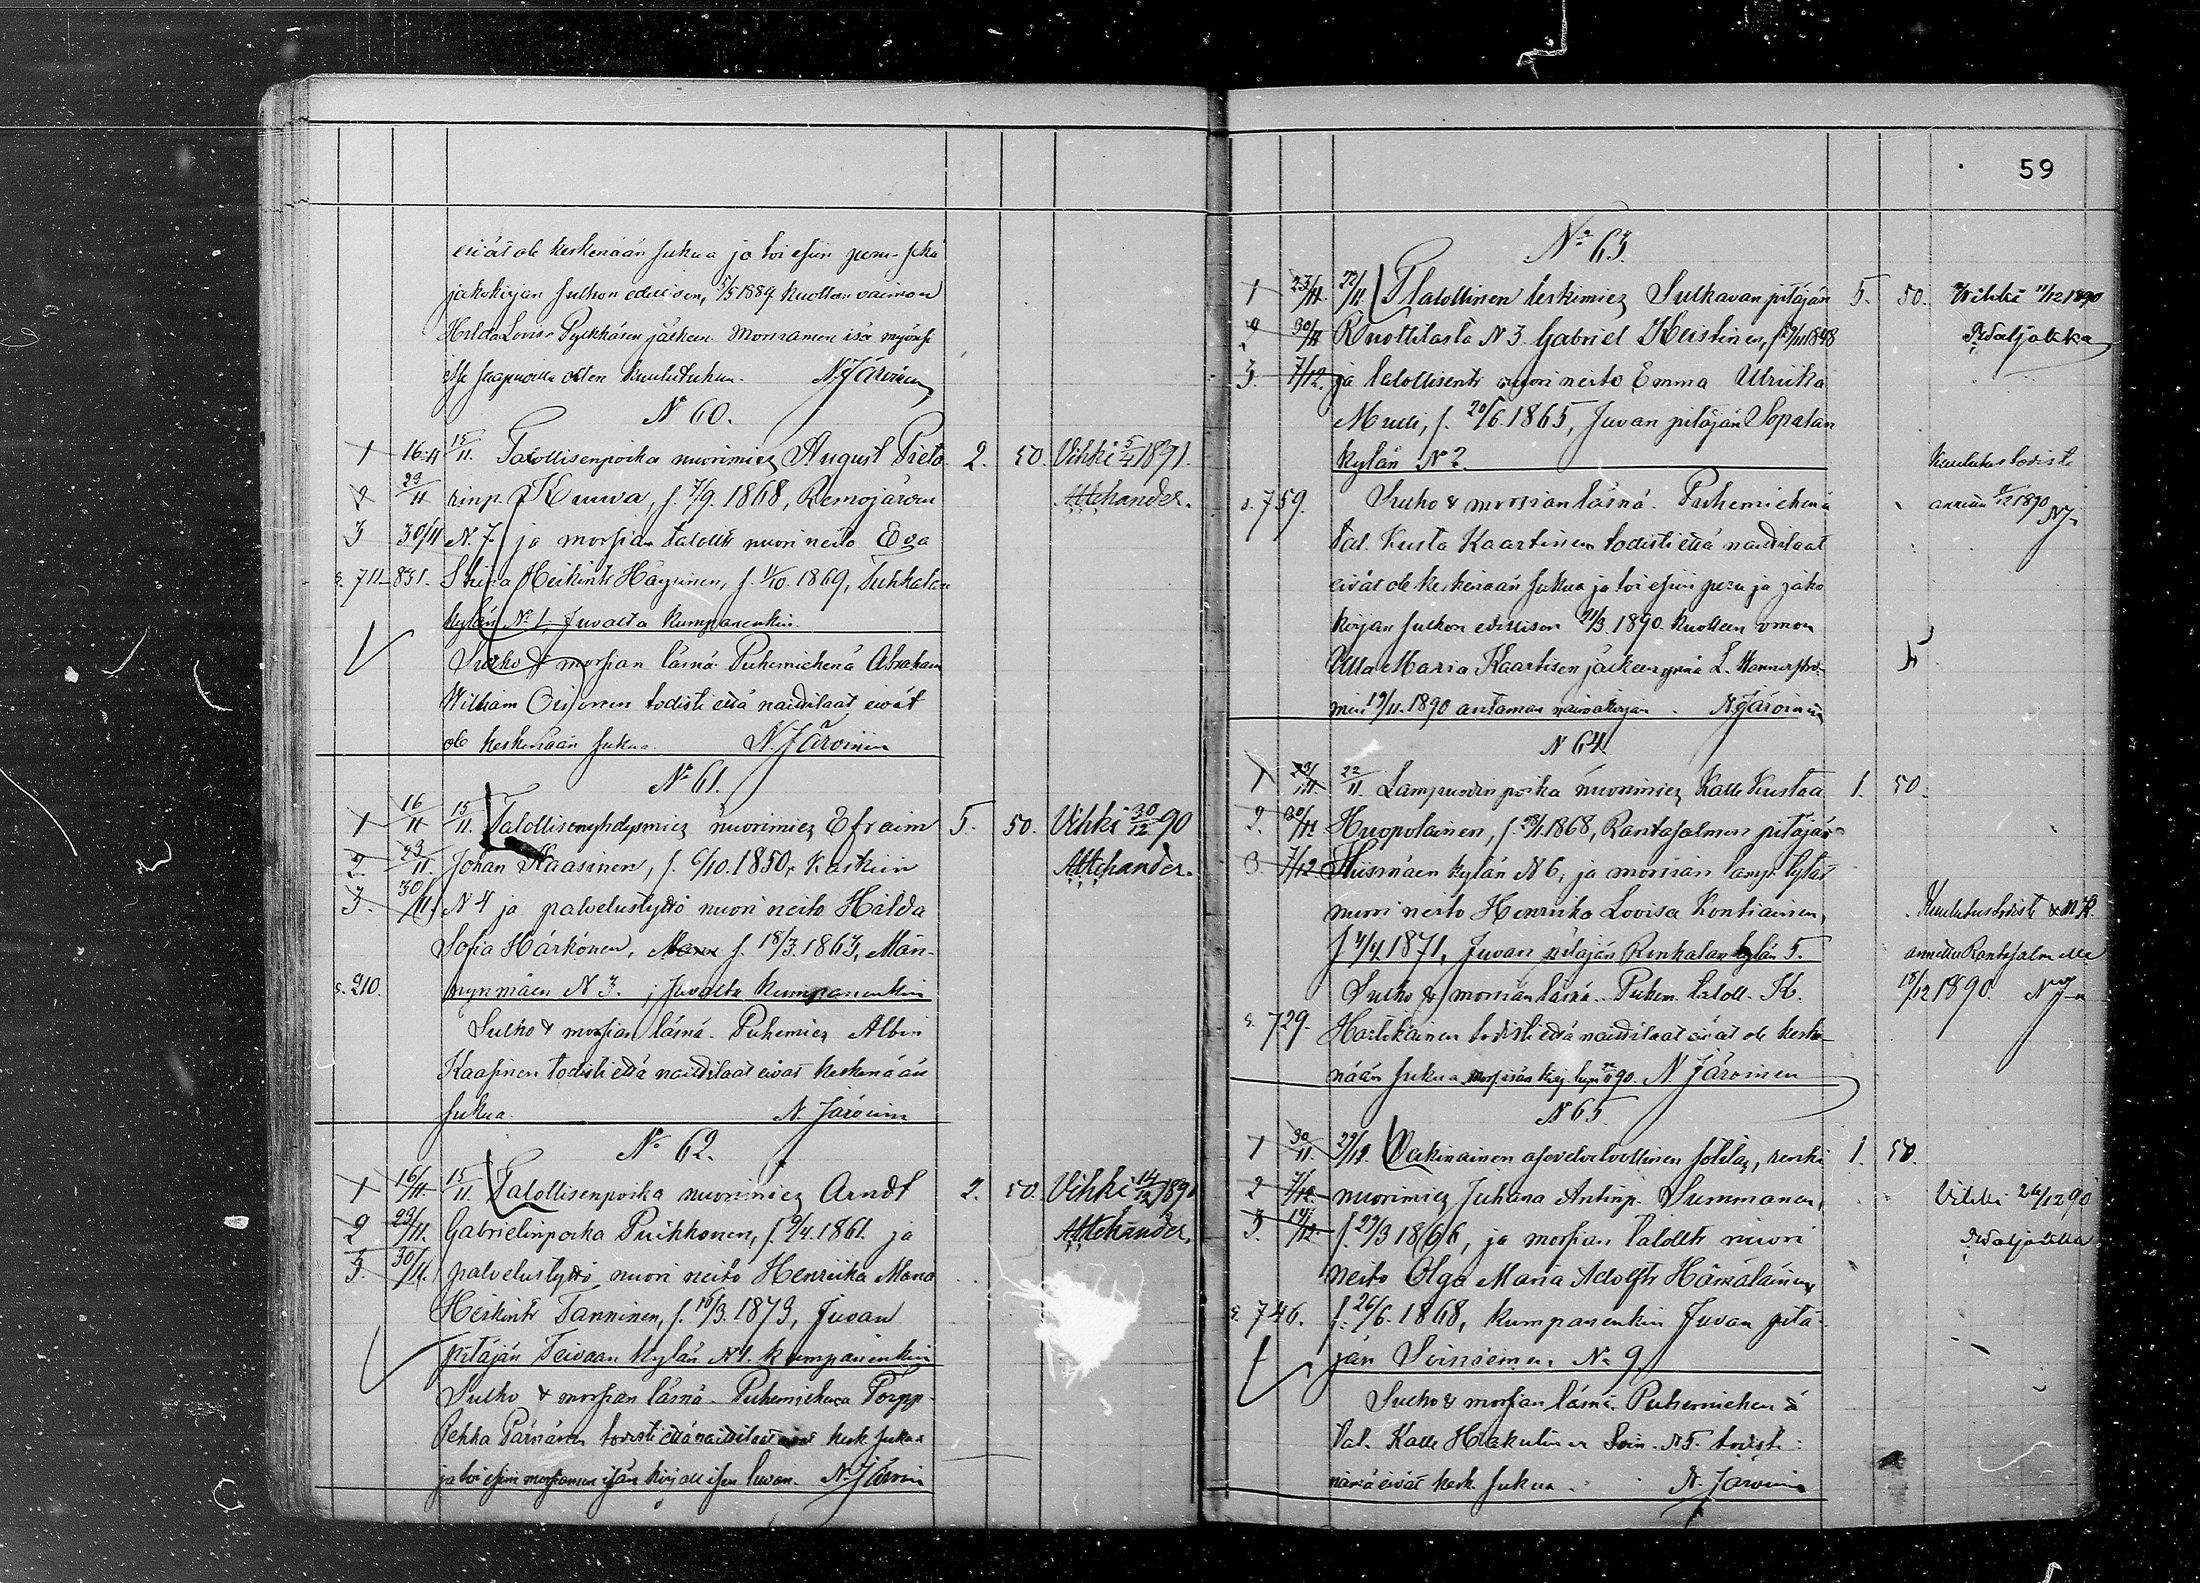 eivät ole keskenään sukua ja toi esiin perun- sekä
jakokirjan sulhon edellisen, 5/5 1889 kuollon vaimon
Hilda Lovisa Pylkkäsen jälkeen. Morsiamen isä myönsi
itse saapuvilla ollen kuulutuksen. N. Järvinen
No 60.
1 16/11 15/11 Talollisenpoika nuorimies August Pieta 2. 50. Vihki 5/4 1891.
2 23/11 rinp. Kuuva, s. 7/9. 1868, Remojärven
3 30/11 N. 7. ja morsian talollts nuori neito Eva
s. 711-831. Stiina Heikints Häyrinen, s. 4/10. 1869, Tuhkalan
kylän No 1, Juvalta kumpanenkin.
Sulho & morsian läsnä. Puhemiehenä Abraham
William todisti että naidilaat eivät
ole keskenään sukua. N. Järvinen
No 61.
1 16/11 15/11. Talollisenyhdysmies nuorimies Efraim 5. 50. Vihki 30/12 90
2. 23/11. Johan Kaasinen, s. 6/10. 1850, Kaskiin
3. 30/11. N 4 ja palvelustyttö nuori neito Hilda
Sofia Härkönen, s. 18/3. 1863, Män-
s. 210. nynmäen N 3. ; Juvalta kumpanenkin
Sulho & morsian läsnä. Puhemies Albin
Kaasinen todisti että naidilaat eivät keskenään
sukua. N. Järvinen
No 62.
1 16/11 15/11. Talollisenpoika nuorimies Arndt 2. 50. Vihki 14/12 1890
2 23/11. Gabrielinpoika Puikkonen, s. 9/4. 1861. ja
3. 30/11. palvelustyttö nuori neito Henriika Maria
Heikints Tanninen, s. 16/3. 1873, Juvan
pitäjän Teivaan kylän N 1. kumpanenkin
Sulho & morsian läsnä. Puhemiehenä Torpp.
Pekka Pärnänen todisti että naidilaat eivät kesk. sukua
ja toi esiin morsiamen isän kirjallisen luvan. N. Järvinen
59
No 63.
1 23/11. 22/11. Talollinen leskimies Sulkavan pitäjän 5. 50. Vihki 11/12 1890
2 30/11 Ruottilasta N 3. Gabriel Heiskinen, 1848
3. 7/12. ja talollisents nuori neito Emma Ulriika
s. 20/6. 1865, Juvan pitäjän Sopalan
kylän N 2. Kuulutustodisti
s. 759. Sulho & morsian läsnä. Puhemiehenä annettu 1890
tal. Kusta Kaartinen todisti että naidilaat
eivät ole keskenään sukua ja toi esiin peru ja jako
kirjan sulhon edellisen 21/3. 1890. kuolleen vimon
Ulla Maria Kaartisen jälkeen
19/11. 1890 antaman N. Järvinen
N 64.
1 23/11. 22/11. Lampuodin poika nuorimies Kalle Kustaa 1. 50.
2. 30/11 Huopolainen, 1868, Rantasalmen pitäjän
3. 7/12. Hiismäen kylän N 6, ja morsian lamp. tytär
nuori neito Henriika Lovisa Kontiainen, Kuulutustodisti
s. 4/4. 1871, Juvan pitäjän Rinkalan kylän 5. annettu Rantasalmella
Sulho & morsian läsnä. Puhem. taloll. K. 18/12 1890.
s. 729. Hartikainen todisti että naidilaat eivät ole keske-
nään sukua 90. N Järvinen
N 65.
1 30/11. 29/11. Vakinainen asevelvollinen sotilas, renki 1. 50.
2 7/12. nuorimies Juhana Antinp. Summanen, Vihki 26/12 90
3. 14/12. s. 27/3 1866, ja morsian talollts nuori
neito Olga Maria Adolfts Hämäläinen,
s. 746. s. 26/6. 1868, kumpanenkin Juvan pitä-
jän Soinniemen No 9.
Sulho & morsian läsnä. Puhemiehenä
Tal. Kalle Hiskulin Soin. N 5. todisti
eivät kesk. sukua. N. Järvinen